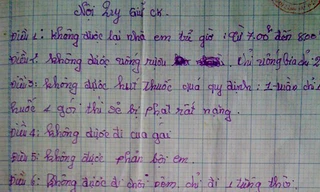 Nội Quy Giữ ck.
Điều 1: không được lại nhà em trễ giờ : Từ 7.00 đến 800
Điều 2: không được uống rượu, chỉ uống bia chỉ: 2
Điều 3: không được hút thuốc quá quy định: 1 tuần chỉ
huốc 2 gói thì sẽ bị phạt rất nặng.
Điều 4: không được đi cua gái
Điều 5: không được phản bội em.
Điều 6: không được đi chơi đêm. chỉ đi